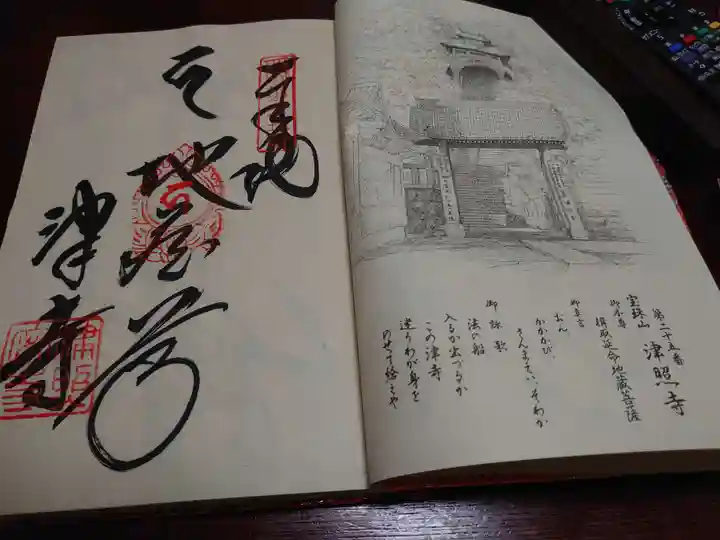 奉納
地蔵尊
津寺
第二十五番
宝珠山 津照寺
御本尊
楫取延命地蔵菩薩
御真言
おん
かかかび
さんまえい そわか
御詠歌
法の船
入るか出づるか
この津寺
迷うわが身を
のせて給えや